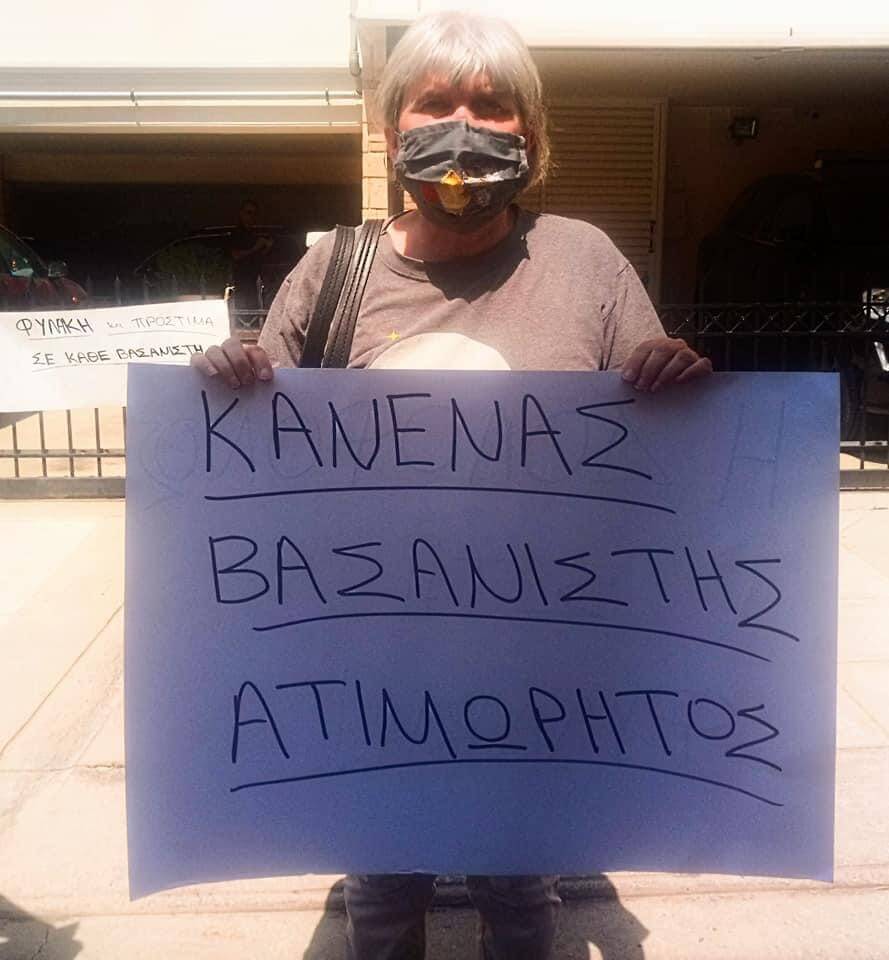 ΦΥΛΑΚΗ και ΠΡΟΣΤΙΜΑ
ΣΕ ΚΑΘΕ ΒΑΣΑΝΙΣΤΗ
ΚΑΝΕΝΑΣ
ΒΑΣΑΝΙΣΤΗΣ
ΑΤΙΜΩΡΗΤΟΣ